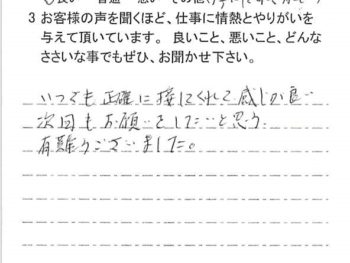 3 お客様の声を聞くほど、仕事に情熱とやりがいを
与えて頂いています。良いこと、悪いこと、どんな
ささいな事でもぜひ、お聞かせ下さい。
いつでも正確に接してくれて感じが良い
次回もお願いをしたいと思う
有難うございました。